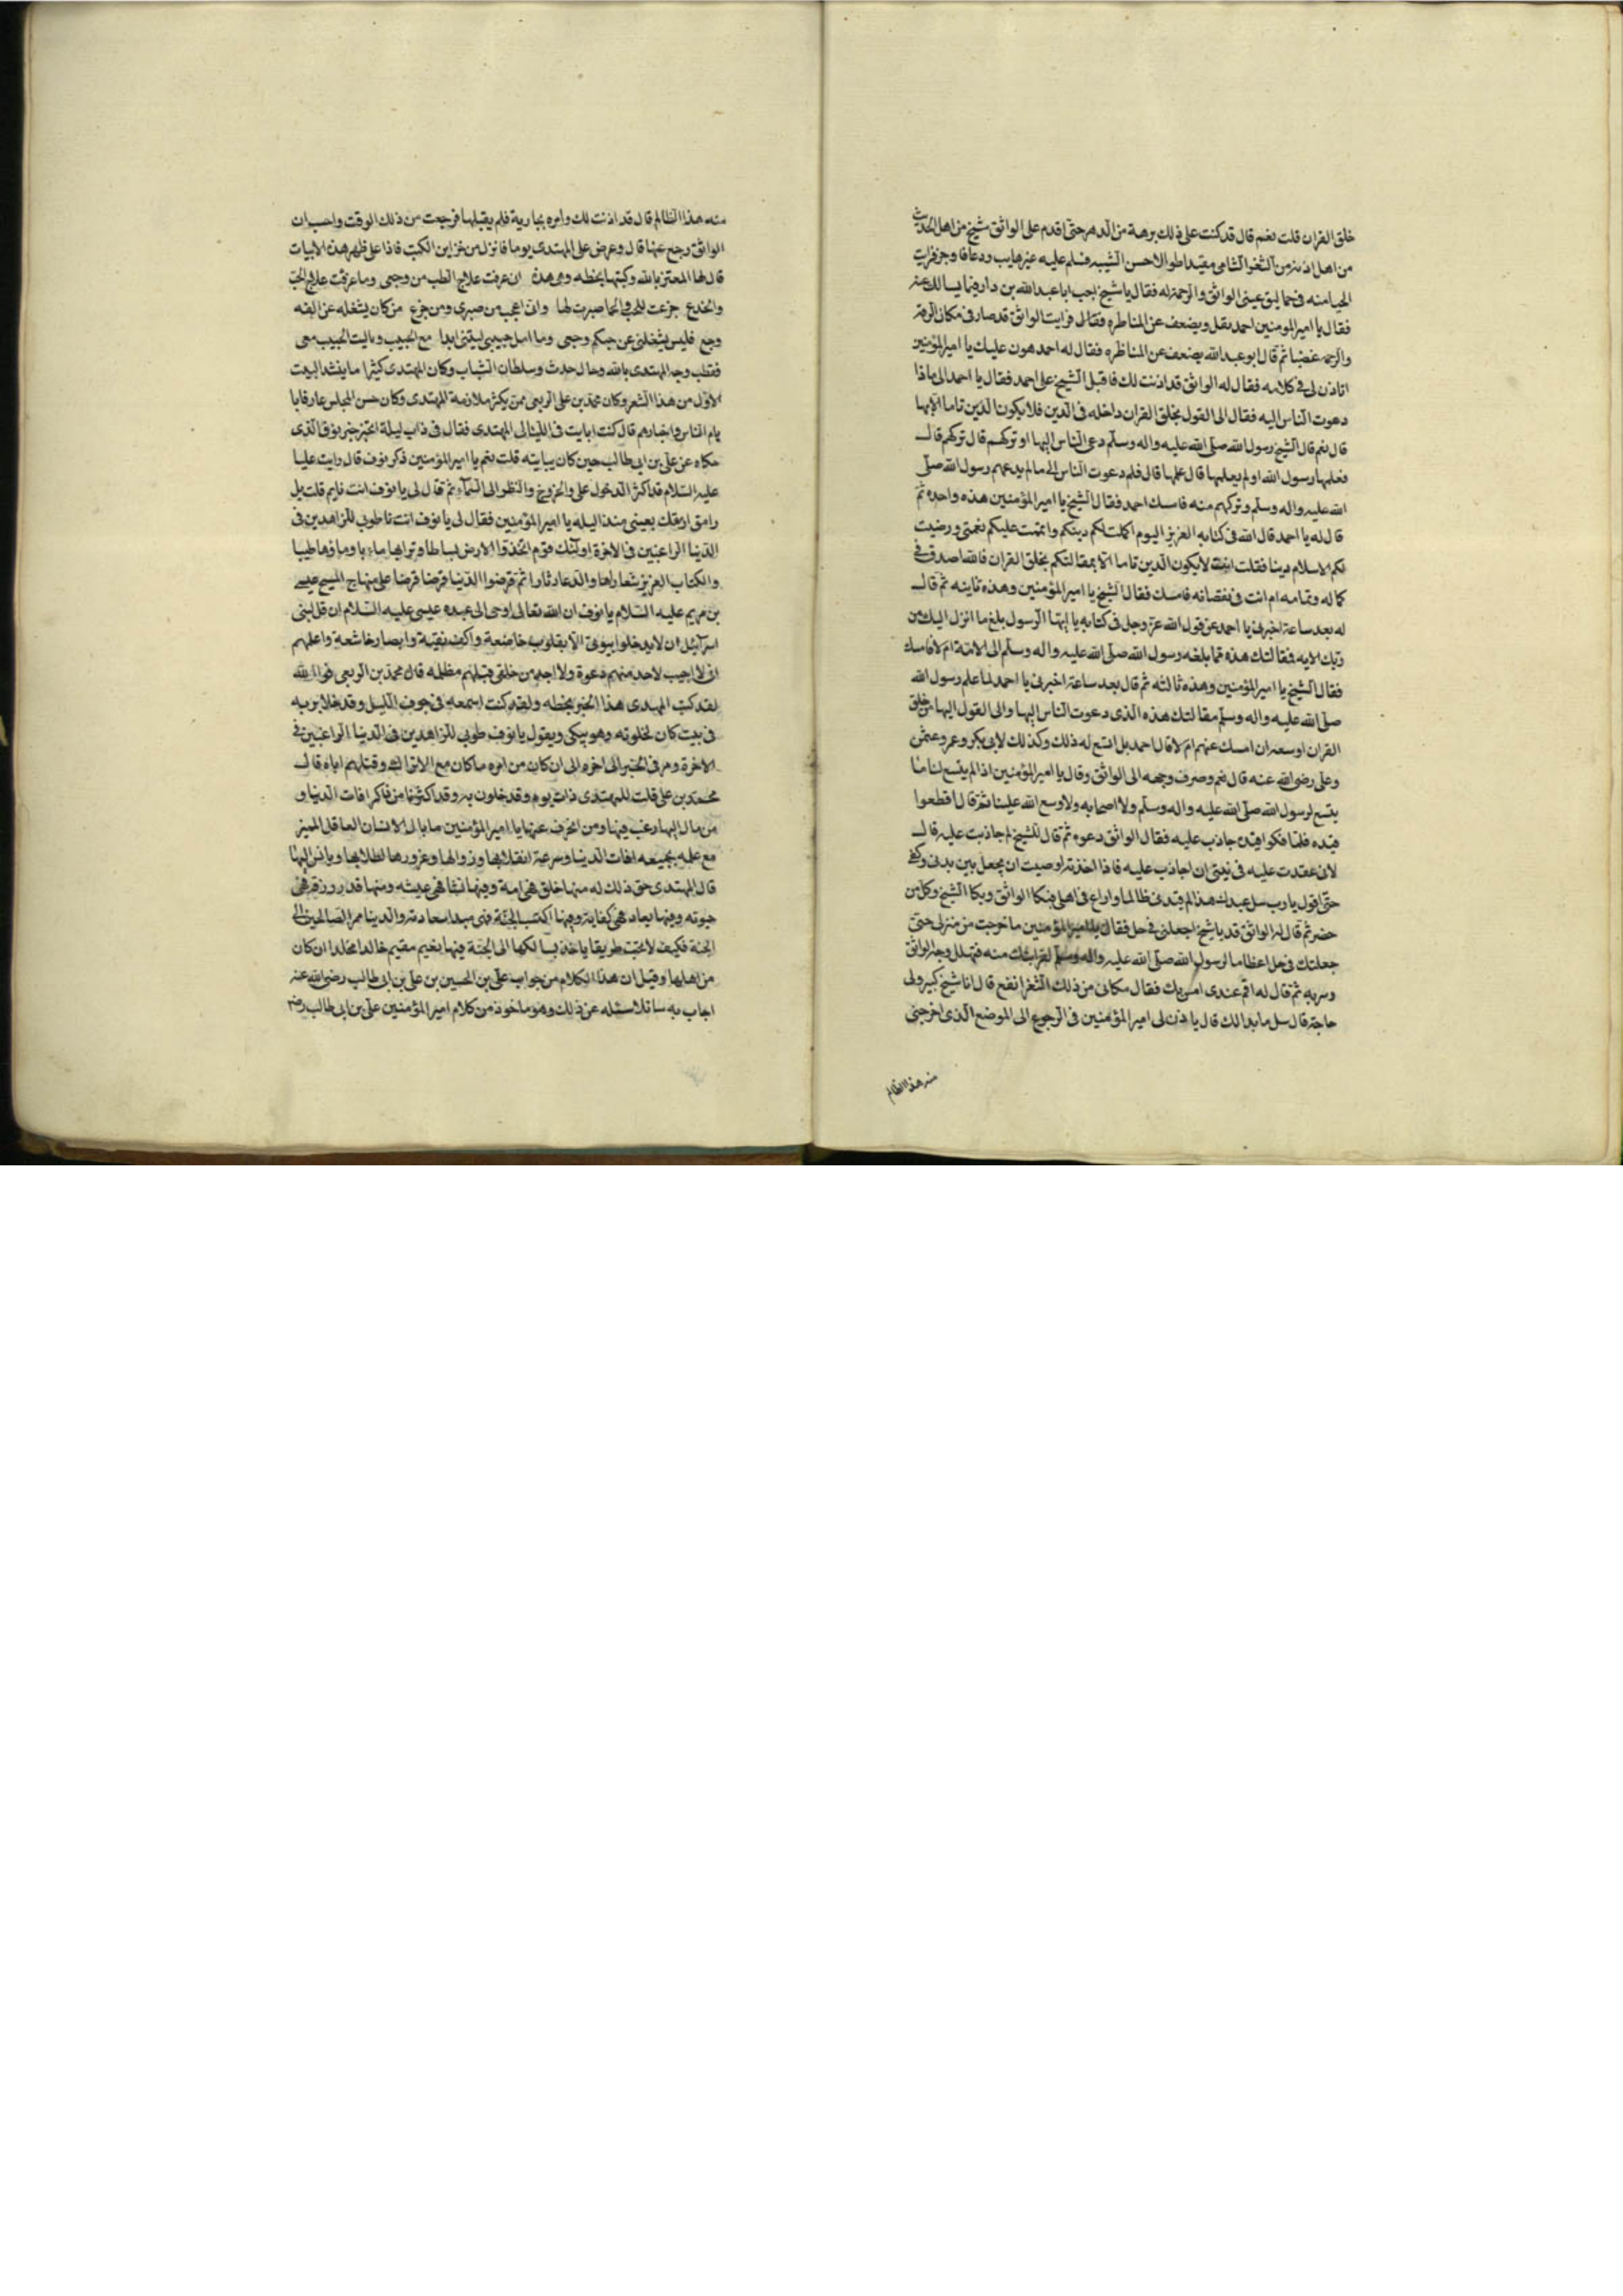 خلق القران قلت نعم قال قد كنت على ذلك برهة من الدهر حتى اقدم على الواثق شيخ من اهل الحديث
من اهل اذنه من الثغر الشامى مقيدا طوالا حسن الشيبه فسلم عليه غير هايب ودعا فاوجز فرايت
الحيا منه فى حماليق عينى الواثق والرحمة له فقال يا شيخ اجب ابا عبد الله بن دار فيما يسالك عنه
فقال يا امير المومنين احمد يقل ويضعف عن المناظره فقال فرايت الواثق قد صار فى مكان الرقة
والرحمه غضبا ثم قال ابو عبد الله يضعف عن المناظره فقال له احمد هون عليك يا امير المؤمنين
اتاذن لى فى كلامه فقال له الواثق قد اذنت لك فاقبل الشيخ على احمد فقال يا احمد الى ماذا
دعوت الناس اليه فقال الى القول بخلق القران داخله فى الدين فلا يكون الدين تاما الا بها
قال نعم قال الشيخ رسول الله صلى الله عليه واله وسلم دعى الناس اليها او تركهم قال تركهم قال
فعلمها رسول الله او لم يعلمها قال علمها قال فلم دعوت الناس الى ما لم يدعهم رسول الله صلى
الله عليه واله وسلم وتركهم منه فامسك احمد فقال الشيخ يا امير المؤمنين هذه واحده ثم
قال له يا احمد قال الله فى كتابه العزيز اليوم اكملت لكم دينكم واتممت عليكم نعمتى ورضيت
لكم الاسلام دينا فقلت انت لا يكون الدين تاما الا بمقالتكم بخلق القران فالله اصدق فى
كماله وتمامه ام انت فى نقصانه فامسك فقال الشيخ يا امير المؤمنين وهذه ثانيه ثم قال
له بعد ساعة اخبرنى يا احمد عن قول الله عز وجل فى كتابه يا ايها الرسول بلغ ما انزل اليك من
ربك الايه فمقالتك هذه مما بلغه رسول الله صلى الله عليه واله وسلم الى الامة ام لا فامسك
فقال الشيخ يا امير المؤمنين وهذه ثالثه ثم قال بعد ساعة اخبرنى يا احمد لما علم رسول الله
صلى الله عليه واله وسلم مقالتك هذه الذى دعوت الناس اليها والى القول اليها من خلق
القران اوسعه ان امسك عنهم ام لا قال احمد بل اتسع له ذلك وكذلك لابى بكر وعمر وعثمن
وعلى رضى الله عنه قال نعم وصرف وجهه الى الواثق وقال يا امير المؤمنين اذا لم يتسع لنا ما
يتسع لرسول الله صلى الله عليه واله وسلم ولا اصحابه ولا وسع الله علينا ثم قال اقطعوا
قيده فلما فكوا قيده جاذب عليه فقال الواثق دعوه ثم قال للشيخ لم جاذبت عليه قال
لانى عقدت عليه فى نيتى ان اجاذب عليه فاذا اخذته اوصيت ان يجعل بين بدنى وكفنى
حتى اقول يا رب سل عبدك هذا لم قيدنى ظالما واراع فى اهلى فبكا الواثق وبكا الشيخ وكل من
حضر ثم قال له الواثق قد يا شيخ اجعلنى فى حل فقال يا امير المؤمنين ما خرجت من منزلى حتى
جعلتك فى حل اعظاما لرسول الله صلى الله عليه واله وسلم لقرابتك منه فتهلل وجه الواثق
وسر به ثم قال له اقم عندى انس بك فقال مكانى من ذلك الثغر انفع قال انا شيخ كبير ولى
حاجة قال سل ما بدا لك قال ياذن لى امير المؤمنين فى الرجوع الى الموضع الذى اخرجنى
منه هذا الظالم
منه هذا الظالم قال قد اذنت لك وامره بجارية فلم يقبلها فرجعت من ذلك الوقت واحسب ان
الواثق رجع عنها قال وعرض على المهتدى يوما فانزل من خزاين الكتب فاذا على ظهر هذه الابيات
قالها المعتز بالله وكتبها بخطه وهى هذه انى عرفت علاج الطب من وجعى وما عرفت علاج الحب
والخدع جزعت للحب والحما صبرت لها وانى اعجب من صبرى ومن جزع من كان يشغله عن الفه
وجع فليس يشغلنى عن حبكم وجعى وما امل حبيبى ليتنى ابدا مع الحبيب وياليت الحبيب معى
فقطب وجه المهتدى بالله وقال حدث وسلطان الشباب وكان المهتدى كثيرا ما ينشد البيت
الاول من هذا الشعر وكان محمد بن على الربعى ممن يكثر ملازمة المهتدى وكان حسن المجلس عارفا با
يام الناس واخبارهم قال كنت ابايت فى الليالى المهتدى فقال فى ذات ليلة اخبر خبر نوف الذى
حكاه عن على بن ابى طالب حين كان يبايته قلت نعم يا امير المؤمنين ذكر نوف قال رايت عليا
عليه السلام قد اكثر الدخول على والخروج والنظر الى السماء ثم قال لى يا نوف انت نايم قلت بل
رامق ارمقك بعينى منذ اليله يا امير المؤمنين فقال لى يا نوف انت نا طوبى للزاهدين فى
الدنيا الراغبين فى الاخرة اولئك قوم اتخذوا الارض بساطا وترابها ماء با وماؤها طيبا
والكتاب العزيز شعارا لها والدعا دثارا ثم قرضوا الدنيا قرضا قرضا على منهاج المسيح عيسى
بن مريم عليه السلام يا نوف ان الله تعالى اوحى الى عبده عيسى عليه السلام ان قل لبنى
اسرائيل ان لا يدخلوا بيوتى الا بقلوب خاضعة واكف نقية وابصار خاشعة واعلمهم
انى لا اجيب لاحد منهم دعوة ولا احد من خلقى قبلهم مظلمه قال محمد بن الربعى فوا الله
لقد كتب المهدى هذا الخبر بخطه ولقد كنت اسمعه فى جوف الليل وقد خلا بربه
فى بيت كان لخلوته وهو يبكى ويقول يا نوف طوبى للزاهدين فى الدنيا الراغبين فى
الاخرة ومر فى الخبر الى اخره الى ان كان من امره ما كان مع الاتراك وقتلهم اياه قال
محمد بن على قلت للمهتدى ذات يوم وقد خلوت به وقد اكثرنا من ذاكر افات الدنيا و
من مال اليها رغب فيها ومن انحرف عنها يا امير المؤمنين ما بال الانسان العاقل المميز
مع علمه بجميعه افات الدنيا وسرعة انقلابها وزوالها وغرورها لطلابها ويانس اليها
قال المهتدى حق ذلك له منها خلق فهى امة وفيها نشا فهى عيشه ومنها قدر رزقه فهى
حيوته وفيها يعاد فهى كفايته وفيها اكتسب الجنة فهى مبدا سعادته والدينا ممر الصالحين الى
الجنة فكيف لا يحب طريقا ياخذ بسالكها الى الجنة فيها بنعيم مقيم خالدا مخلدا ان كان
من اهلها وقيل ان هذا الكلام من جواب على بن الحسين بن على بن ابى طالب رضى الله عنه
اجاب به سائلا سئله عن ذلك وهو ماخوذ من كلام امير المؤمنين على بن ابى طالب رض